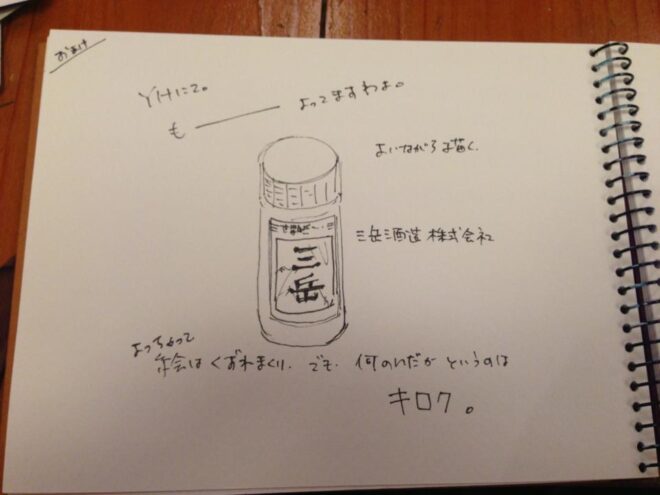 おまけ
YHにて。
も——— よってますわよ。
よいながらよ描く、
三岳酒造株式会社
三岳
よっちゃって
絵はくずれまくり、でも、何のんだか というのは
キロク。